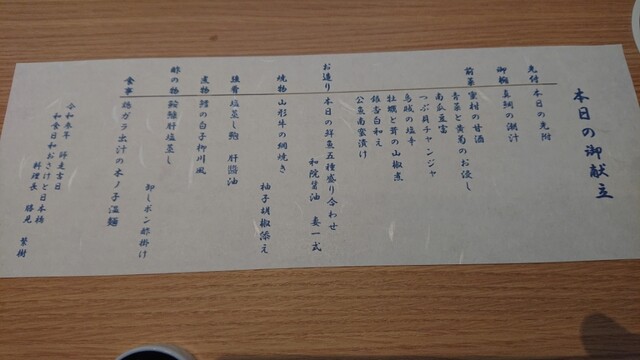 本日の御献立
先付 本日の先附
御椀 真鯛の潮汁
前菜 蜜柑の甘酒
青菜と黄菊のお浸し
南瓜豆富
つぶ貝チャンジャ
烏賊の塩辛
牡蠣と茸の山椒煮
銀杏白和え
公魚南蛮漬け
お造り 本日の鮮魚五種盛り合わせ
和院醤油 妻一式
焼物 山形牛の網焼き
柚子胡椒添え
強肴 塩蒸し鮑 肝醤油
煮物 鱈の白子柳川風
酢の物 鮟鱇肝塩蒸し
卸しポン酢掛け
食事 鶏ガラ出汁の木ノ子温麺
令和参年 師走吉日
和食日和おさけと日本橋
料理長 勝見 繁樹